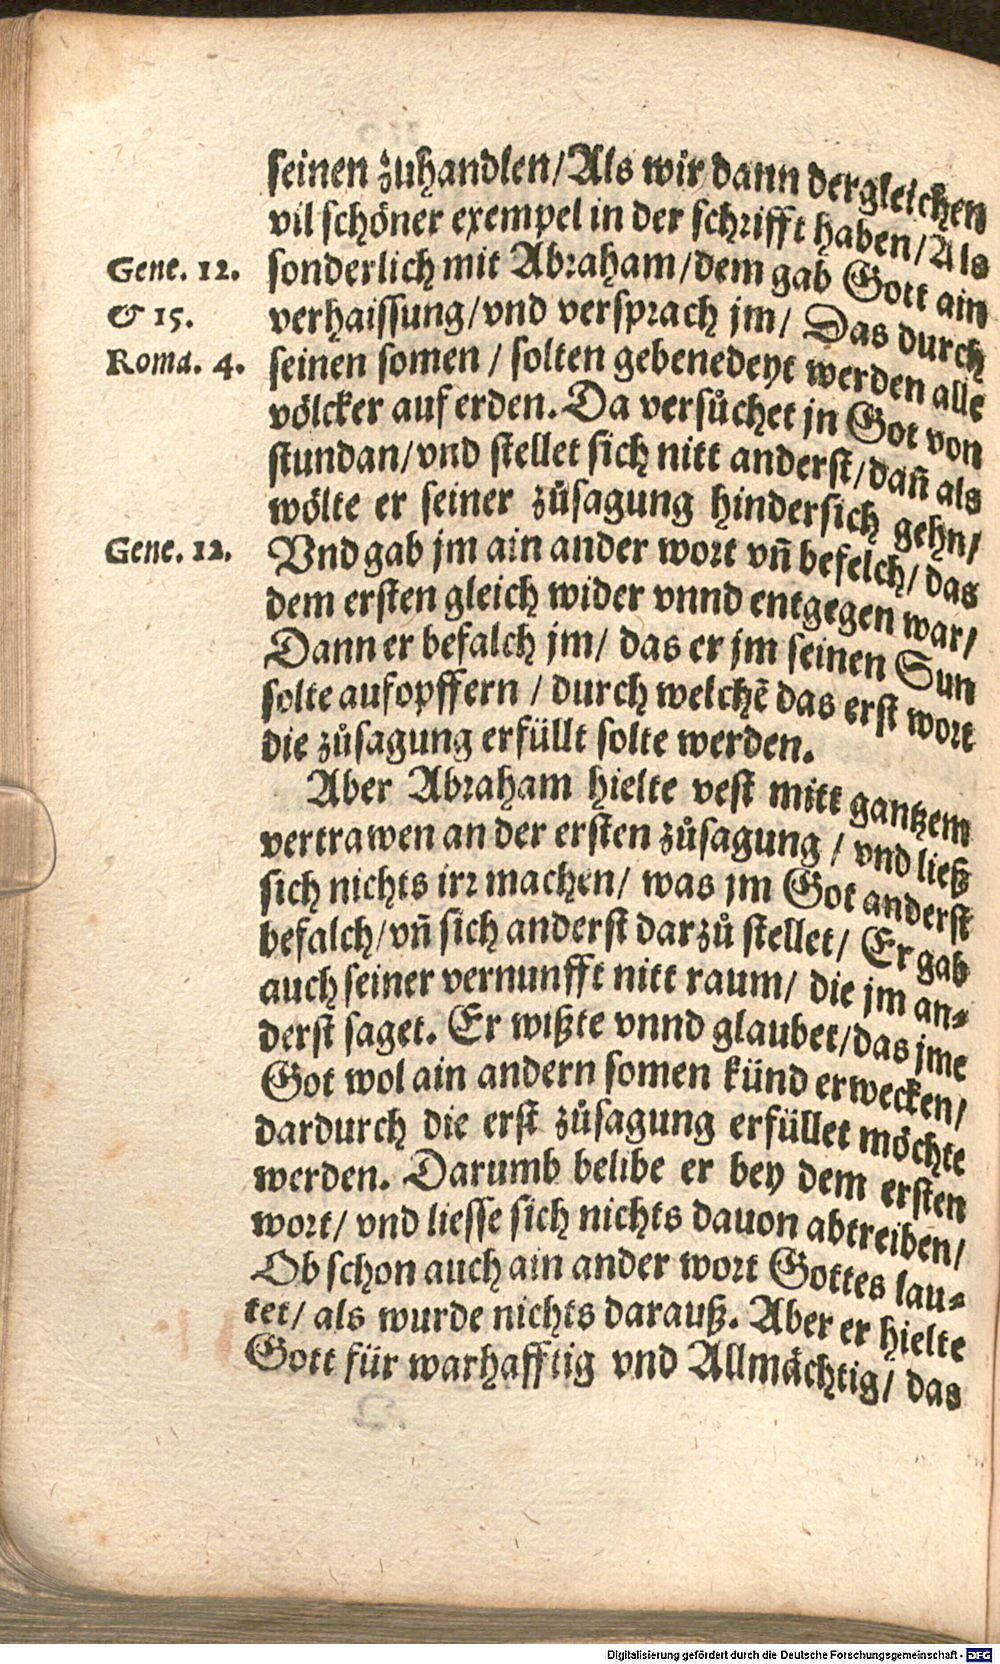 seinen zůhandlen/Als wir dann dergleichen
vil schöner exempel in der schrifft haben/Als
Gene. 12. sonderlich mit Abraham/dem gab Gott ain
& 15. verhaissung/vnd versprach jm/ Das durch
Roma. 4. seinen somen / solten gebenedeyt werden alle
völcker auf erden. Da versůchet jn Got von
stundan/vnd stellet sich nitt anderst/dañ als
wölte er seiner zůsagung hindersich gehn/
Gene. 12. Vnd gab jm ain ander wort vñ befelch/ das
dem ersten gleich wider vnnd entgegen war/
Dann er befalch jm/ das er jm seinen Sun
solte aufopffern / durch welchē das erst wort
die zůsagung erfüllt solte werden.
Aber Abraham hielte vest mitt gantzem
vertrawen an der ersten zůsagung / vnd ließ
sich nichts irr machen/ was jm Got anderst
befalch/vñ sich anderst darzů stellet/ Er gab
auch seiner vernunfft nitt raum/ die jm an⸗
derst saget. Er wißte vnnd glaubet/das jme
Got wol ain andern somen künd erwecken/
dardurch die erst zůsagung erfüllet möchte
werden. Darumb belibe er bey dem ersten
wort/ vnd liesse sich nichts dauon abtreiben/
Ob schon auch ain ander wort Gottes lau⸗
tet/ als wurde nichts darauß. Aber er hielte
Gott für warhafftig vnd Allmächtig/ das
Digitalisierung gefördert durch die Deutsche Forschungsgemeinschaft - DFG